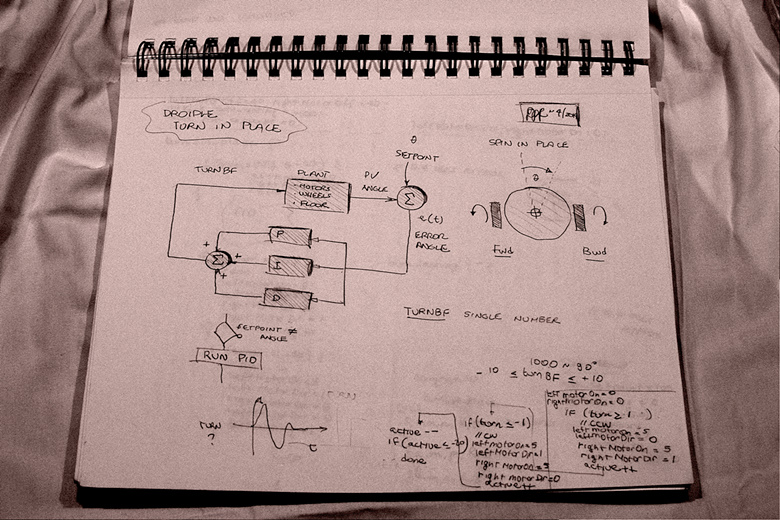 DROIPLE
TURN IN PLACE
θ
SETPOINT
SPIN IN PLACE
θ
TURNBF
PLANT
MOTORS
WHEELS
FLOOR
PV
ANGLE
Σ
e(t)
ERROR
ANGLE
Fwd
Bwd
P
+
Σ
+
I
+
D
TURNBF SINGLE NUMBER
SETPOINT ≠
ANGLE
RUN PID
1000 ~ 90°
- 10 ≤ turnBF ≤ +10
TURN
?
t
active --
if (active ≤ -20)
done
if (turn ≤ -1)
// CCW
leftmotorOn = 5
leftMotorDir = 1
rightMotorOn = 5
right motorDir = 0
active++
left motorOn = 0
rightmotorOn = 0
if (turn ≥ 1)
// CCW
left motorOn = 5
leftmotorDir = 0
right MotorOn = 5
right MotorDir = 1
active++